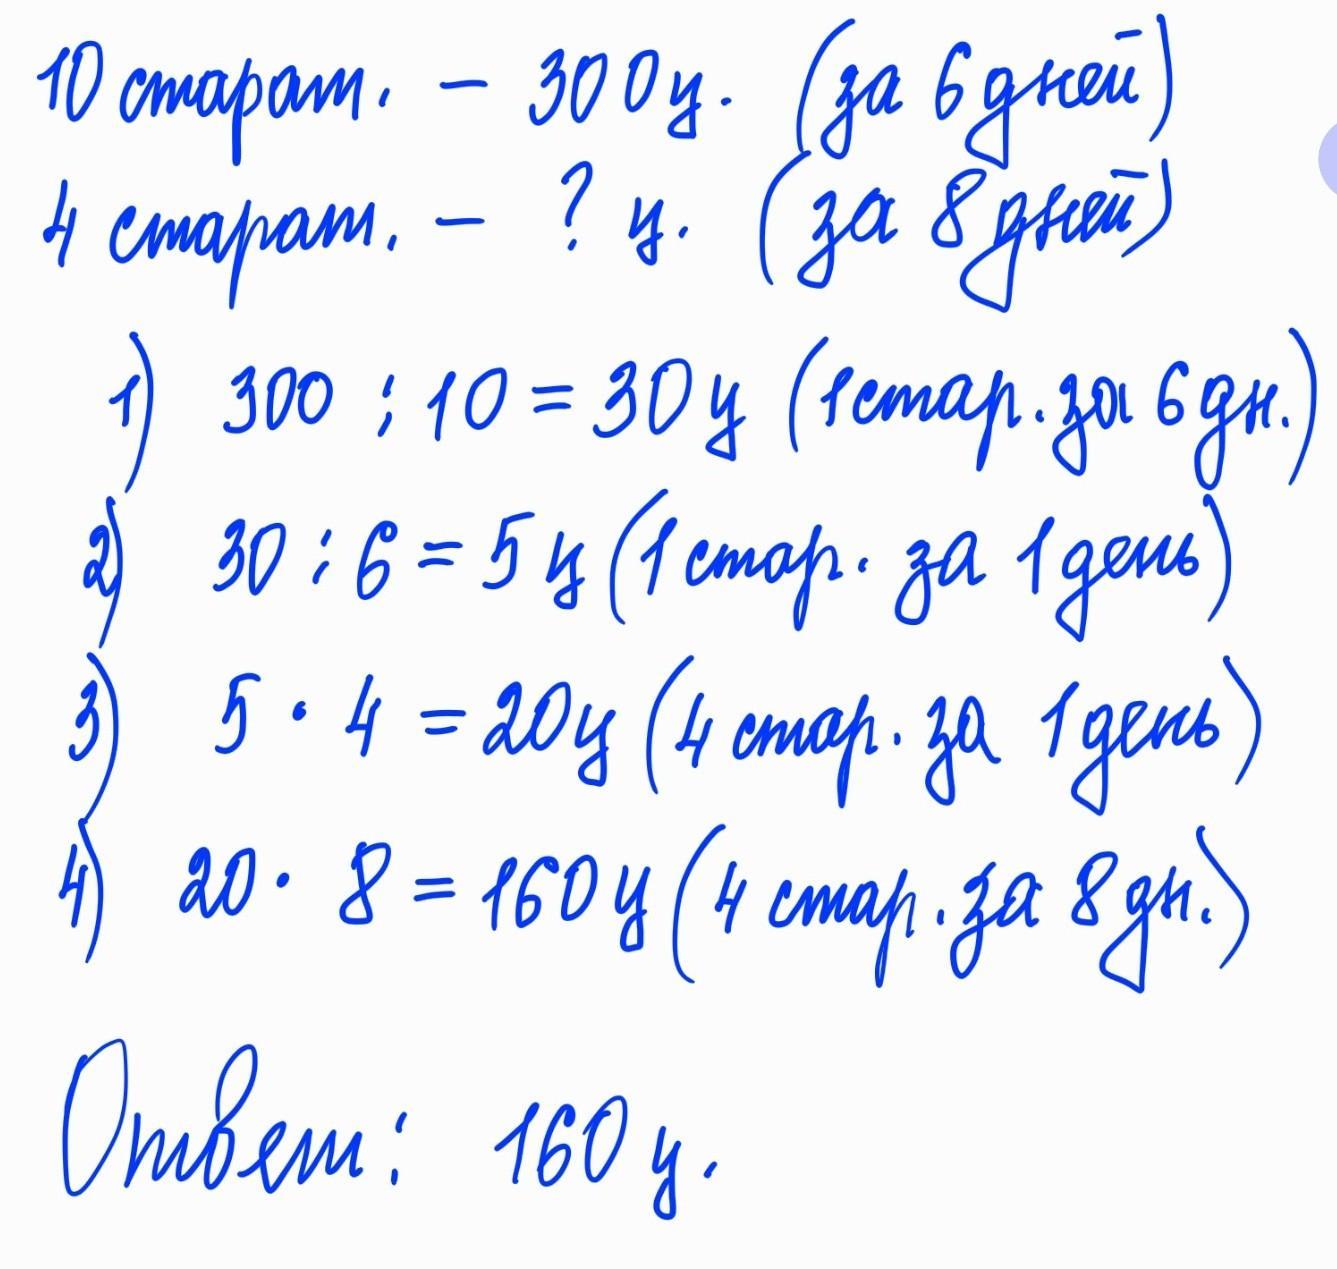 10 старат. - 300ц. (за 6 дней)
4 старат. - ? ц. (за 8 дней)
1) 300 : 10 = 30ц (1 стар. за 6 дн.)
2) 30 : 6 = 5ц (1 стар. за 1 день)
3) 5 · 4 = 20ц (4 стар. за 1 день)
4) 20 · 8 = 160ц (4 стар. за 8 дн.)
Ответ: 160ц.